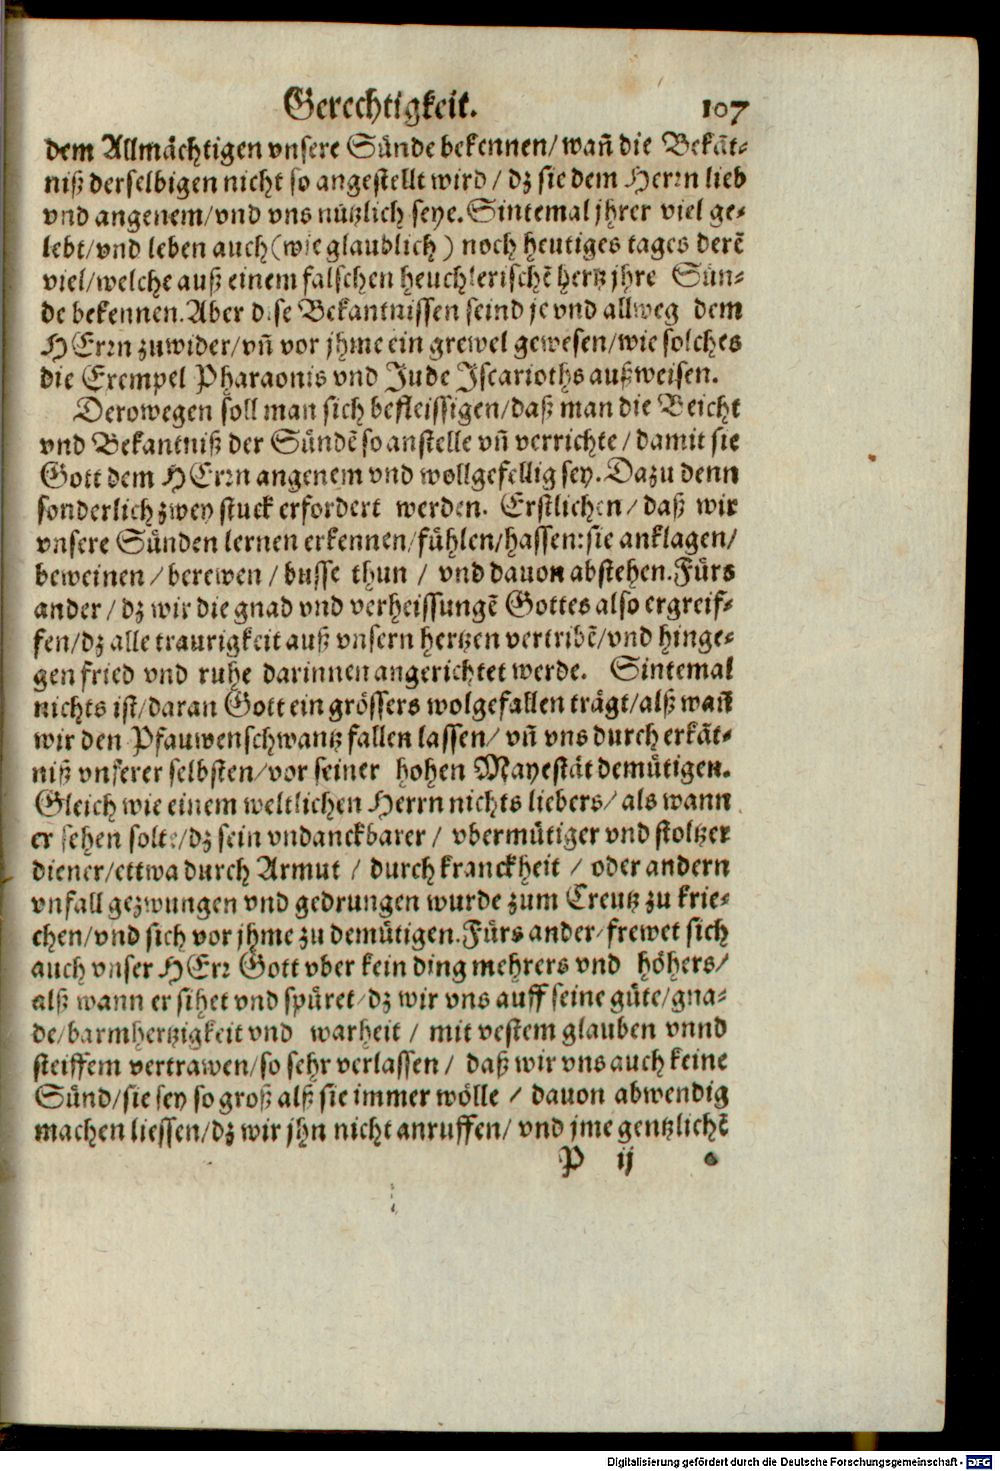 Gerechtigkeit. 107
dem Allmächtigen vnsere Sünde bekennen/ wañ die Bekāt-
niß derselbigen nicht so angestellt wird/ dz sie dem Herrn lieb
vnd angenem/ vnd vns nützlich seye. Sintemal jhrer viel ge-
lebt/ vnd leben auch (wie glaublich) noch heutiges tages derē
viel/ welche auß einem falschen heuchlerischē hertz jhre Sün-
de bekennen. Aber dise Bekantnissen seind je vnd allweg dem
HErrn zuwider/ vñ vor jhme ein grewel gewesen/ wie solches
die Exempel Pharaonis vnd Jude Iscarioths außweisen.
Derowegen soll man sich befleissigen/ daß man die Beicht
vnd Bekantniß der Sündē so anstelle vñ verrichte/ damit sie
Gott dem HErrn angenem vnd wollgefellig sey. Dazu denn
sonderlich zwey stuck erfordert werden. Erstlichen/ daß wir
vnsere Sünden lernen erkennen/ fühlen/ hassen: sie anklagen/
beweinen/ berewen/ busse thun/ vnd dauon abstehen. Fürs
ander/ dz wir die gnad vnd verheissungē Gottes also ergreif-
fen/ dz alle traurigkeit auß vnsern hertzen vertribē/ vnd hinge-
gen fried vnd ruhe darinnen angerichtet werde. Sintemal
nichts ist/ daran Gott ein grössers wolgefallen trägt/ alß wañ
wir den Pfauwenschwantz fallen lassen/ vñ vns durch erkāt-
niß vnserer selbsten/ vor seiner hohen Mayestät demütigen.
Gleich wie einem weltlichen Herrn nichts liebers/ als wann
er sehen solte/ dz sein vndanckbarer/ vbermütiger vnd stoltzer
diener/ ettwa durch Armut/ durch kranckheit/ oder andern
vnfall gezwungen vnd gedrungen wurde zum Creutz zu krie-
chen/ vnd sich vor jhme zu demütigen. Fürs ander/ frewet sich
auch vnser HErr Gott vber kein ding mehrers vnd höhers/
alß wann er sihet vnd spüret/ dz wir vns auff seine güte/ gna-
de/ barmhertzigkeit vnd warheit/ mit vestem glauben vnnd
steiffem vertrawen/ so sehr verlassen/ daß wir vns auch keine
Sünd/ sie sey so groß alß sie immer wölle/ dauon abwendig
machen liessen/ dz wir jhn nicht anruffen/ vnd jme gentzlichē
P ij
Digitalisierung gefördert durch die Deutsche Forschungsgemeinschaft - DFG